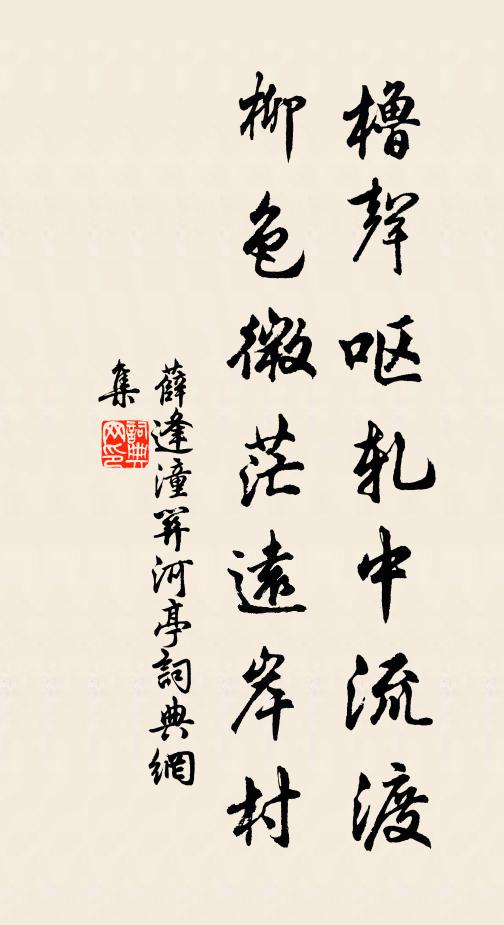 櫓聲呕軋中流渡
柳色微茫遠岸村
薛逢潼關河亭詞典網
集
詞典
网印